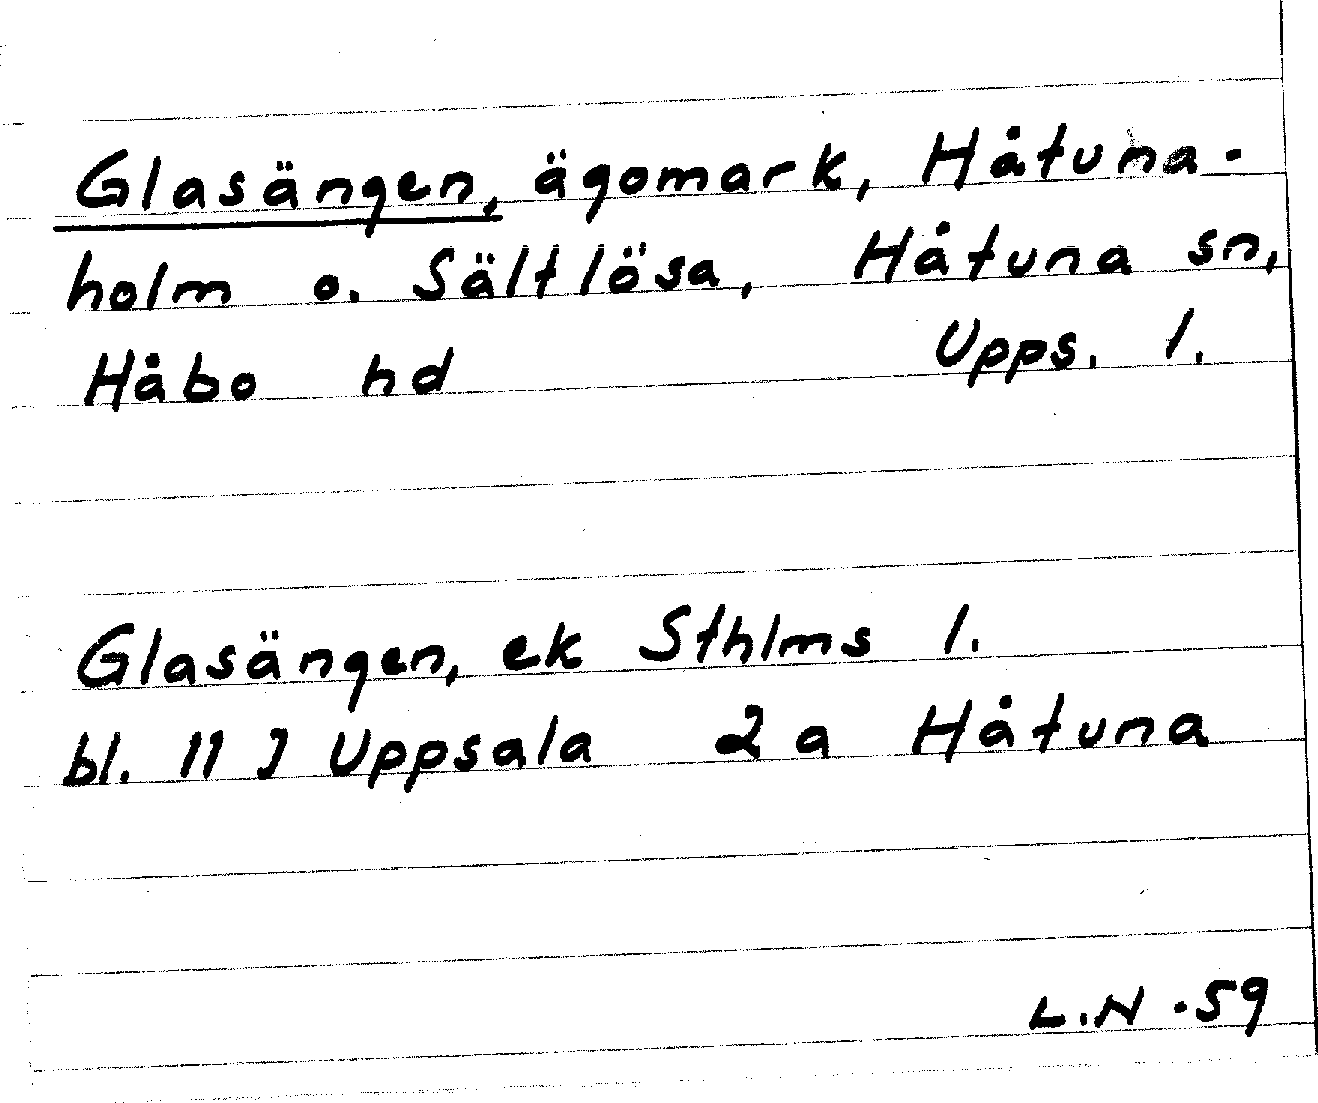 Glasängen, ägomark, Håtuna-
holm o. Sältlösa, Håtuna sn,
Håbo hd Upps. l.
Glasängen, ek Sthlms l.
bl. 11 J Uppsala 2 a Håtuna
L.N -59